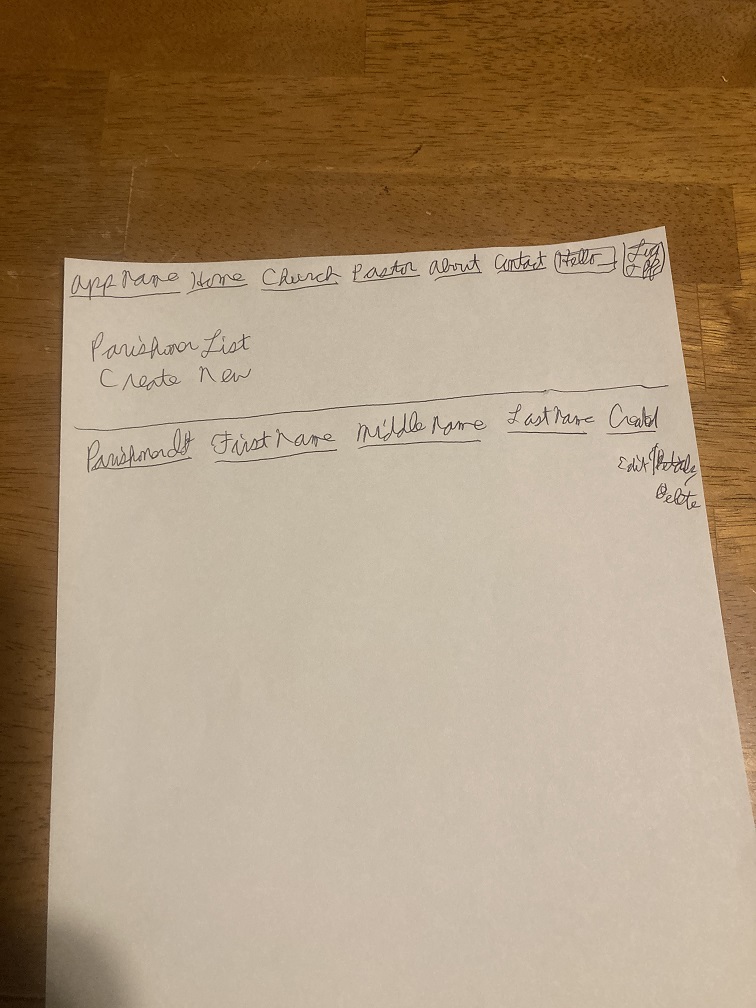 App Name Home Church Pastor About Contact Hello Log Off
Parishoner List
Create New
ParishonerId First Name Middle Name Last Name Created
Edit/Details/
Delete